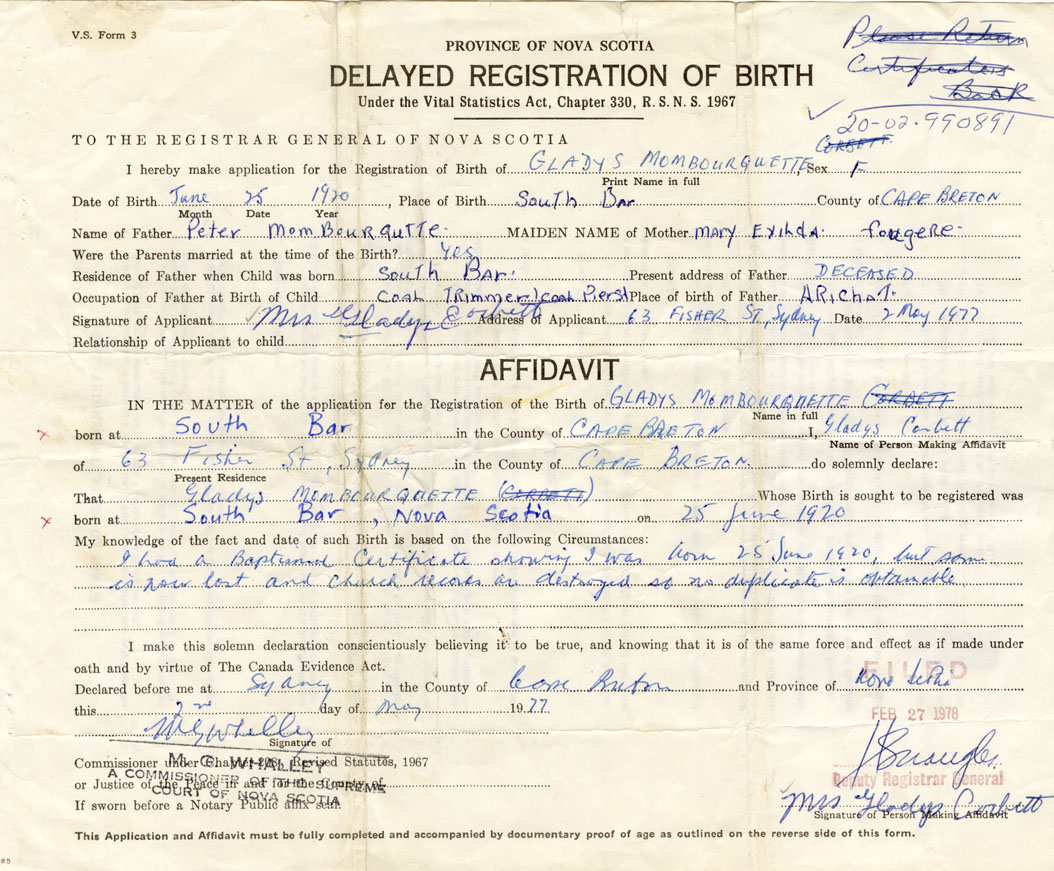 V.S. Form 3
Please Return
Certificates
Back
PROVINCE OF NOVA SCOTIA
DELAYED REGISTRATION OF BIRTH
Under the Vital Statistics Act, Chapter 330, R.S.N.S. 1967
20-02-990891
TO THE REGISTRAR GENERAL OF NOVA SCOTIA
CORBETT
I hereby make application for the Registration of Birth of GLADYS MOMBOURQUETTE, Sex F
Print Name in full
Date of Birth June 25 1920, Place of Birth South Bar County of CAPE BRETON
Month Date Year
Name of Father Peter MomBourqutte MAIDEN NAME of Mother MARY EXILDA FougeRe
Were the Parents married at the time of the Birth? Yes
Residence of Father when Child was born South Bar Present address of Father DECEASED
Occupation of Father at Birth of Child Coal TRimmer (coal Piers) Place of birth of Father ARichaT
Signature of Applicant Mrs Gladys Corbett Address of Applicant 63 FISHER ST, Sydney Date 2 May 1977
Relationship of Applicant to child
AFFIDAVIT
IN THE MATTER of the application for the Registration of the Birth of GLADYS MOMBOURQUETTE CORBETT
Name in full
born at South Bar in the County of CAPE BRETON I, Gladys Corbett
Name of Person Making Affidavit
of 63 Fisher St, Sydney in the County of CAPE BRETON do solemnly declare:
Present Residence
That Gladys MOMBOURQUETTE (CORBETT) Whose Birth is sought to be registered was
born at South Bar, Nova Scotia on 25 June 1920
My knowledge of the fact and date of such Birth is based on the following Circumstances:
I had a Baptismal Certificate showing I was born 25 June 1920, but same
is now lost and church records are destroyed so no duplicate is obtainable
I make this solemn declaration conscientiously believing it to be true, and knowing that it is of the same force and effect as if made under
oath and by virtue of The Canada Evidence Act.
FILED
Declared before me at Sydney in the County of Cape Breton and Province of Nova Scotia
this 2nd day of May 1977
FEB 27 1978
M G Whalley
Signature of
Commissioner under Chapter , Revised Statutes, 1967
M. G. WHALLEY
or Justice of the Peace in and for the County of
A COMMISSIONER OF THE SUPREME
COURT OF NOVA SCOTIA
If sworn before a Notary Public affix seal
Deputy Registrar General
Mrs Gladys Corbett
Signature of Person Making Affidavit
This Application and Affidavit must be fully completed and accompanied by documentary proof of age as outlined on the reverse side of this form.